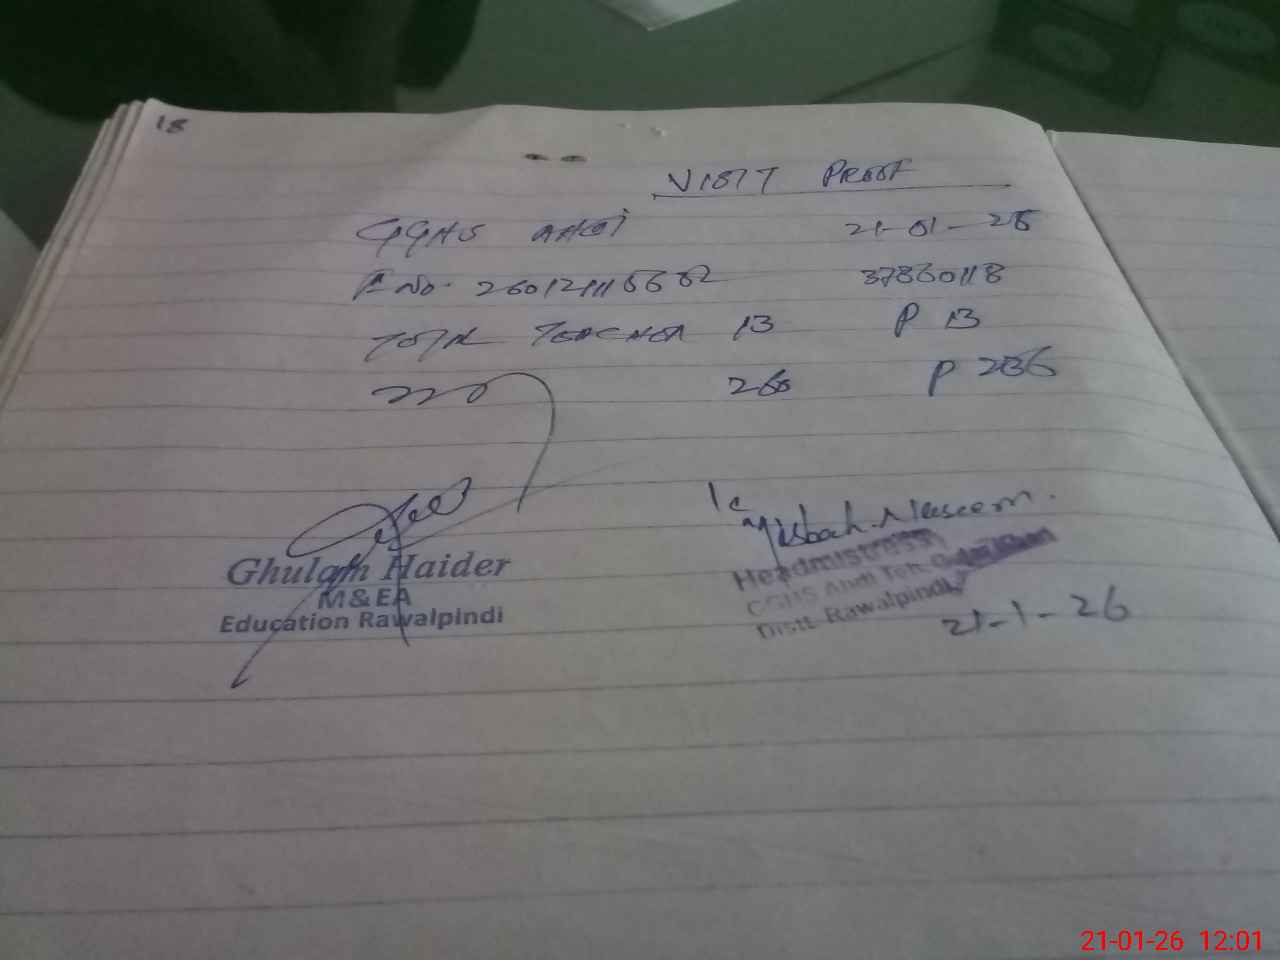 18
VISIT PROOF
GGHS AHDI 21-01-26
F No. 37330118
TOTAL TEACHER 13 P 13
260 P 236
Ghulam Haider
M&EA
Education Rawalpindi
Misbah Naseem.
Headmistress
GGHS Ahdi Teh
Distt. Rawalpindi
21-1-26
21-01-26 12:01